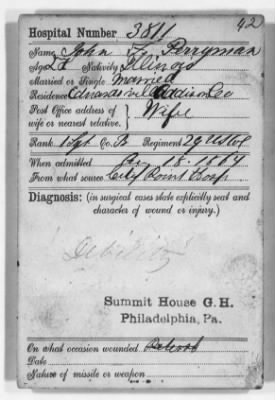 42
Hospital Number 3811
Name John Perryman
Age Nativity Illinois
Married or Single Married
Residence Co
Post Office address of
wife or nearest relative. } Wife
Rank Sgt Co. B Regiment 29 US Col
When admitted 18. 1864
From what source City Point Hosp
Diagnosis: (in surgical cases state explicitly seat and
character of wound or injury.)
Debility
Summit House G. H.
Philadelphia, Pa.
On what occasion wounded
Date
Nature of missile or weapon